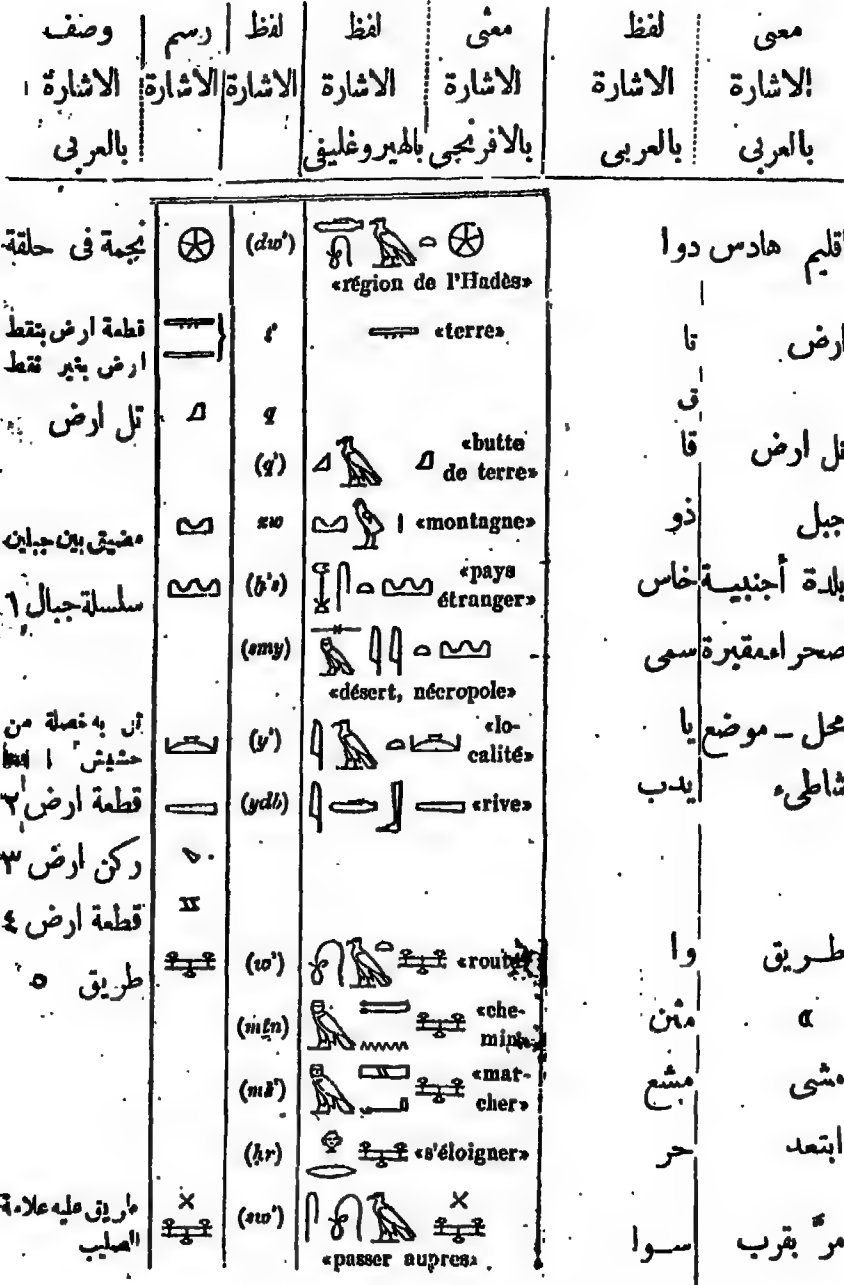 معنى الاشارة بالعربى | لفظ الاشارة بالعربى | معنى الاشارة بالافرنجى | لفظ الاشارة بالهيروغليفى | لفظ الاشارة | رسم الاشارة | وصف الاشارة بالعربى
اقليم هادس دوا «région de l'Hadès» (dw') نجمة فى حلقة
ارض تا «terre» t' قطعة ارض بنقط
ارض بغير نقط
ق q تل ارض
تل ارض قا «butte de terre» (q')
جبل ذو «montagne» zw مضيق بين جبلين
بلدة أجنبية خاس «pays étranger» (ḫ's) سلسلة جبال ١
صحراء مقبرة سمى «désert, nécropole» (smy)
محل ــ موضع يا «localité» (y')
شاطىء يدب «rive» (ydb) قطعة ارض ٢
ركن ارض ٣
قطعة ارض ٤
طريق وا «route» (w') طريق ٥
« مثن «chemin» (mṯn)
مشى مشع «marcher» (mš')
ابتعد حر «s'éloigner» (ḥr)
مرّ بقرب سوا «passer aupres» (sw') طريق عليه علامة
الصليب